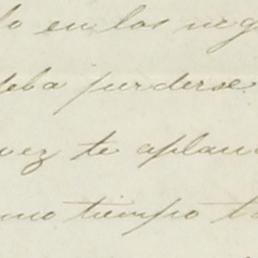 do en los neg
deba perderse
vez te aplau
mo tiempo t